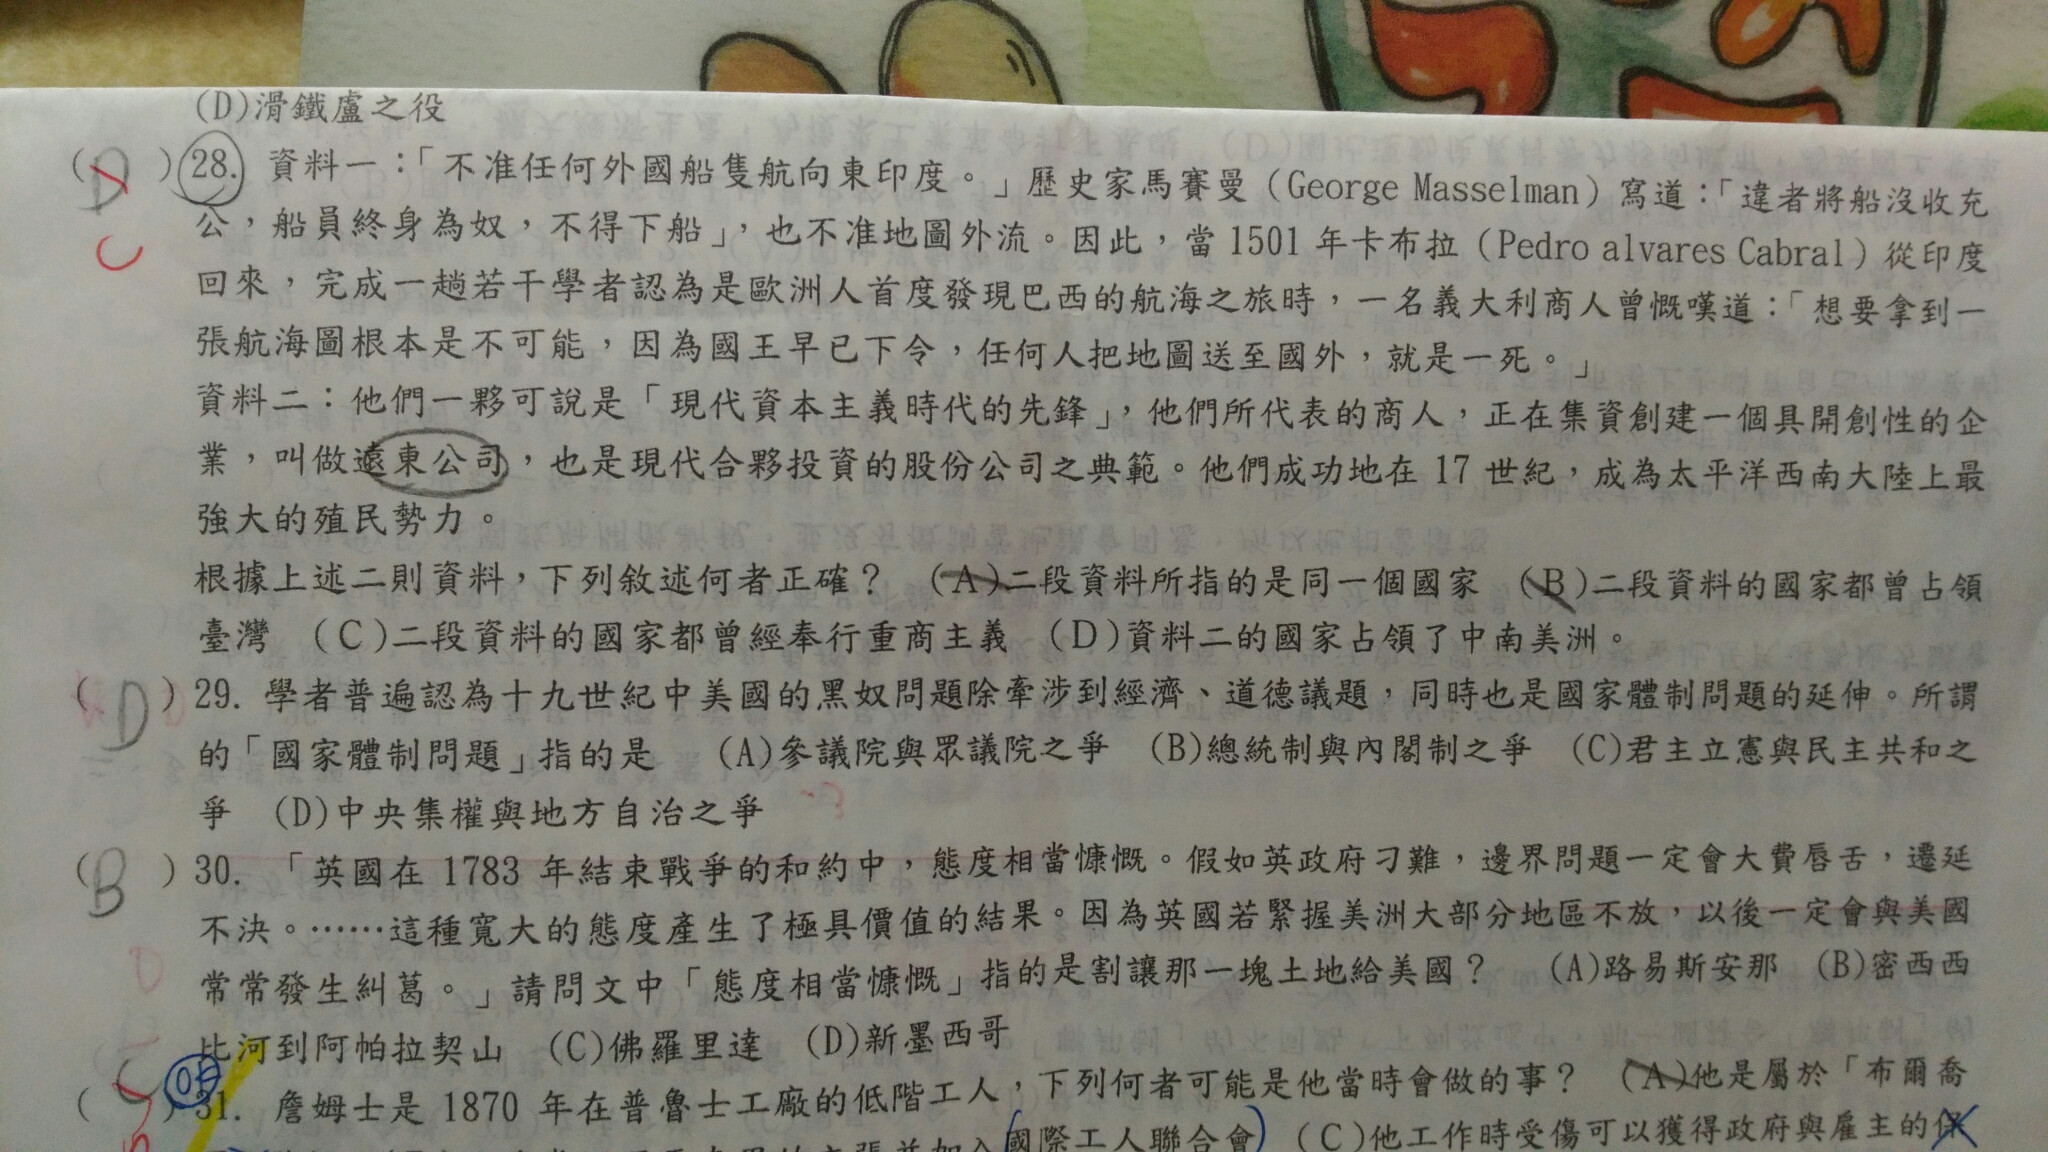 (D)滑鐵盧之役
(D)28. 資料一：「不准任何外國船隻航向東印度。」歷史家馬賽曼（George Masselman）寫道：「違者將船沒收充
C
公，船員終身為奴，不得下船」，也不准地圖外流。因此，當 1501 年卡布拉（Pedro alvares Cabral）從印度
回來，完成一趟若干學者認為是歐洲人首度發現巴西的航海之旅時，一名義大利商人曾慨嘆道：「想要拿到一
張航海圖根本是不可能，因為國王早已下令，任何人把地圖送至國外，就是一死。」
資料二：他們一夥可說是「現代資本主義時代的先鋒」，他們所代表的商人，正在集資創建一個具開創性的企
業，叫做遠東公司，也是現代合夥投資的股份公司之典範。他們成功地在 17 世紀，成為太平洋西南大陸上最
強大的殖民勢力。
根據上述二則資料，下列敘述何者正確？ (A)二段資料所指的是同一個國家 (B)二段資料的國家都曾占領
臺灣 (C)二段資料的國家都曾經奉行重商主義 (D)資料二的國家占領了中南美洲。
(D)29. 學者普遍認為十九世紀中美國的黑奴問題除牽涉到經濟、道德議題，同時也是國家體制問題的延伸。所謂
的「國家體制問題」指的是 (A)參議院與眾議院之爭 (B)總統制與內閣制之爭 (C)君主立憲與民主共和之
爭 (D)中央集權與地方自治之爭
(B)30. 「英國在 1783 年結束戰爭的和約中，態度相當慷慨。假如英政府刁難，邊界問題一定會大費唇舌，遷延
不決。……這種寬大的態度產生了極具價值的結果。因為英國若緊握美洲大部分地區不放，以後一定會與美國
常常發生糾葛。」請問文中「態度相當慷慨」指的是割讓那一塊土地給美國？ (A)路易斯安那 (B)密西西
比河到阿帕拉契山 (C)佛羅里達 (D)新墨西哥
( )31. 詹姆士是 1870 年在普魯士工廠的低階工人，下列何者可能是他當時會做的事？ (A)他是屬於「布爾喬
國際工人聯合會 (C)他工作時受傷可以獲得政府與雇主的保